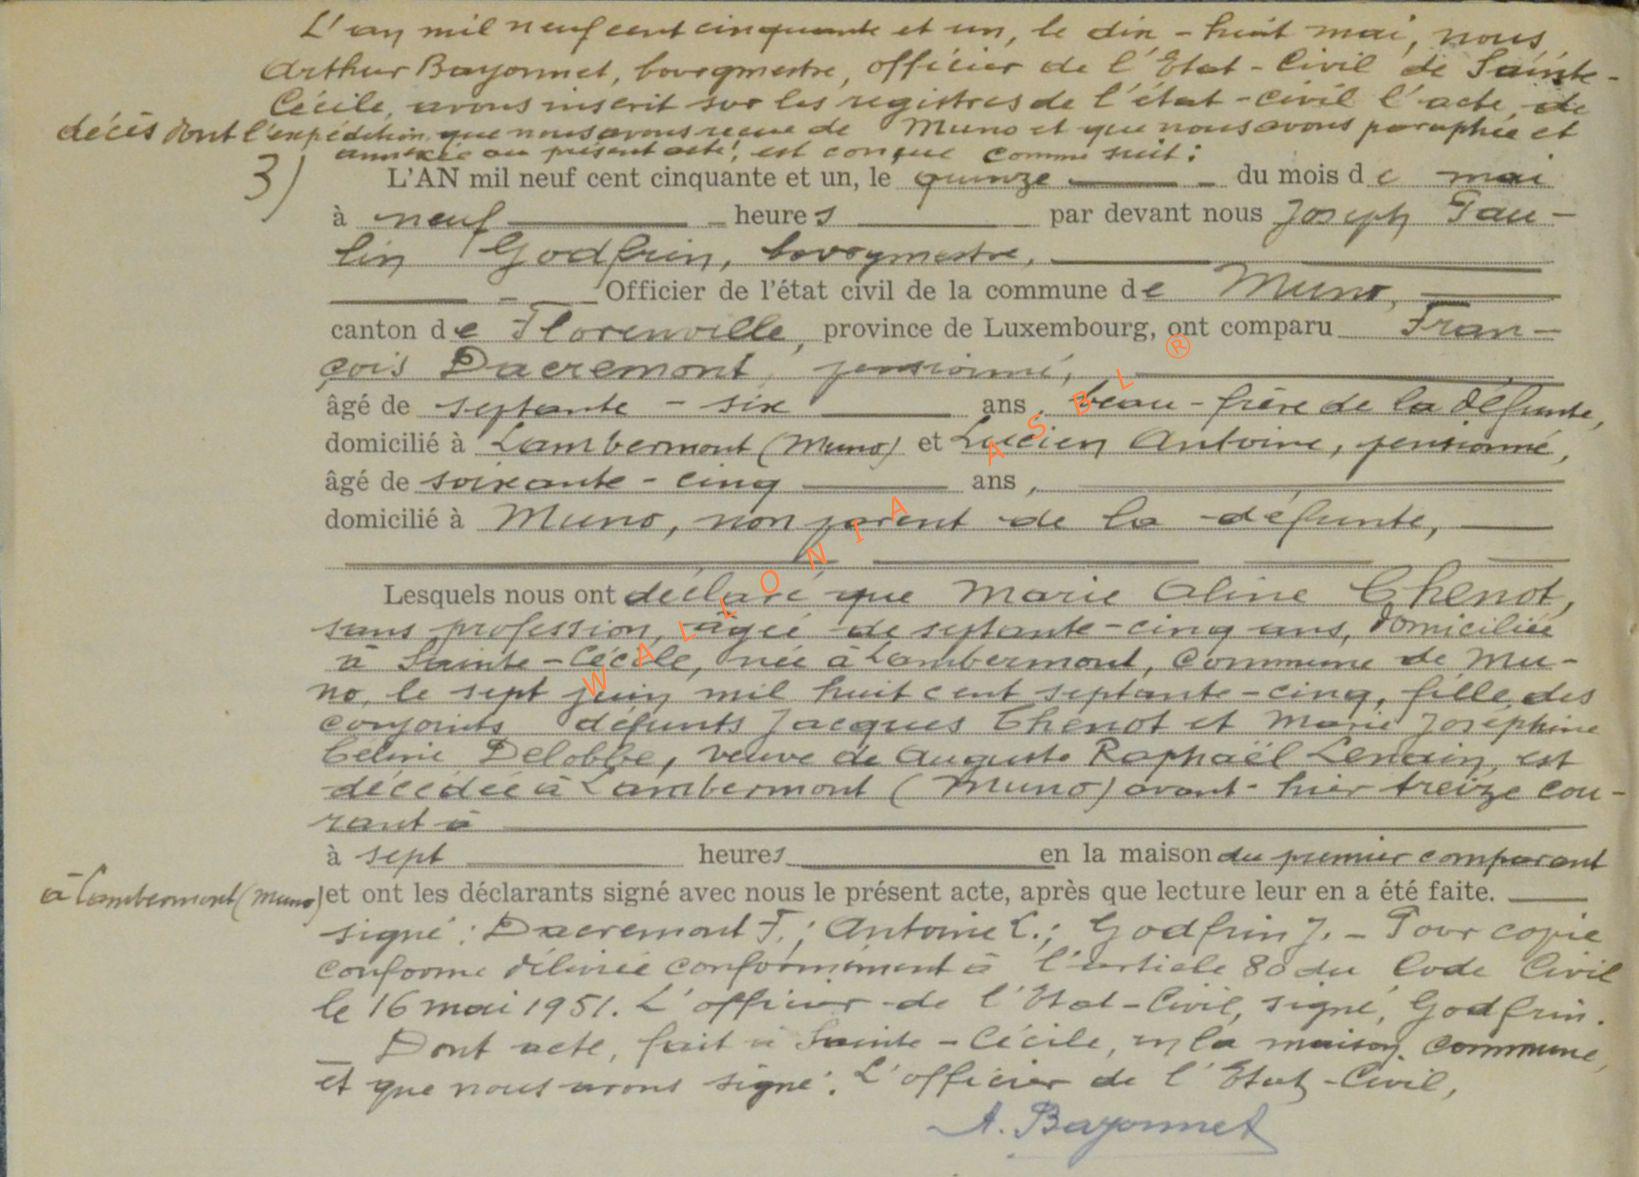 L'an mil neuf cent cinquante et un, le dix-huit mai, nous
Arthur Bayonnet, bourgmestre, officier de l'Etat-Civil de Sainte-
Cécile, avons inscrit sur les registres de l'état-civil l'acte de
décès dont l'expédition que nous avons reçue de Muno et que nous avons paraphée et
annexée au présent acte, est conçue comme suit :
3) L'AN mil neuf cent cinquante et un, le quinze du mois de mai
à neuf heures par devant nous Joseph Pau-
lin Godfrin, bourgmestre,
Officier de l'état civil de la commune de Muno,
canton de Florenville, province de Luxembourg, ont comparu Fran-
çois Dacremont, pensionné,
âgé de septante-six ans, beau-frère de la défunte,
domicilié à Lambermont (Muno) et Lucien Antoine, pensionné,
âgé de soixante-cinq ans,
domicilié à Muno, non parent de la défunte,
Lesquels nous ont déclaré que Marie Aline Thenot,
sans profession, âgée de septante-cinq ans, domiciliée
à Sainte-Cécile, née à Lambermont, commune de Mu-
no, le sept juin mil huit cent septante-cinq, fille des
conjoints défunts Jacques Thenot et Marie Joséphine
Céline Delobbe, veuve de Auguste Raphaël Lenain, est
décédée à Lambermont (Muno) avant-hier treize cou-
rant à
à sept heures en la maison du premier comparant
à Lambermont (Muno) et ont les déclarants signé avec nous le présent acte, après que lecture leur en a été faite.
signé : Dacremont F. ; Antoine L. ; Godfrin J. - Pour copie
conforme délivrée conformément à l'article 80 du Code Civil
le 16 mai 1951. L'officier de l'Etat-Civil, signé, Godfrin.
_ Dont acte, fait à Sainte-Cécile, en la maison commune,
et que nous avons signé. L'officier de l'Etat-Civil,
A. Bayonnet
WALLONIA ASBL ®